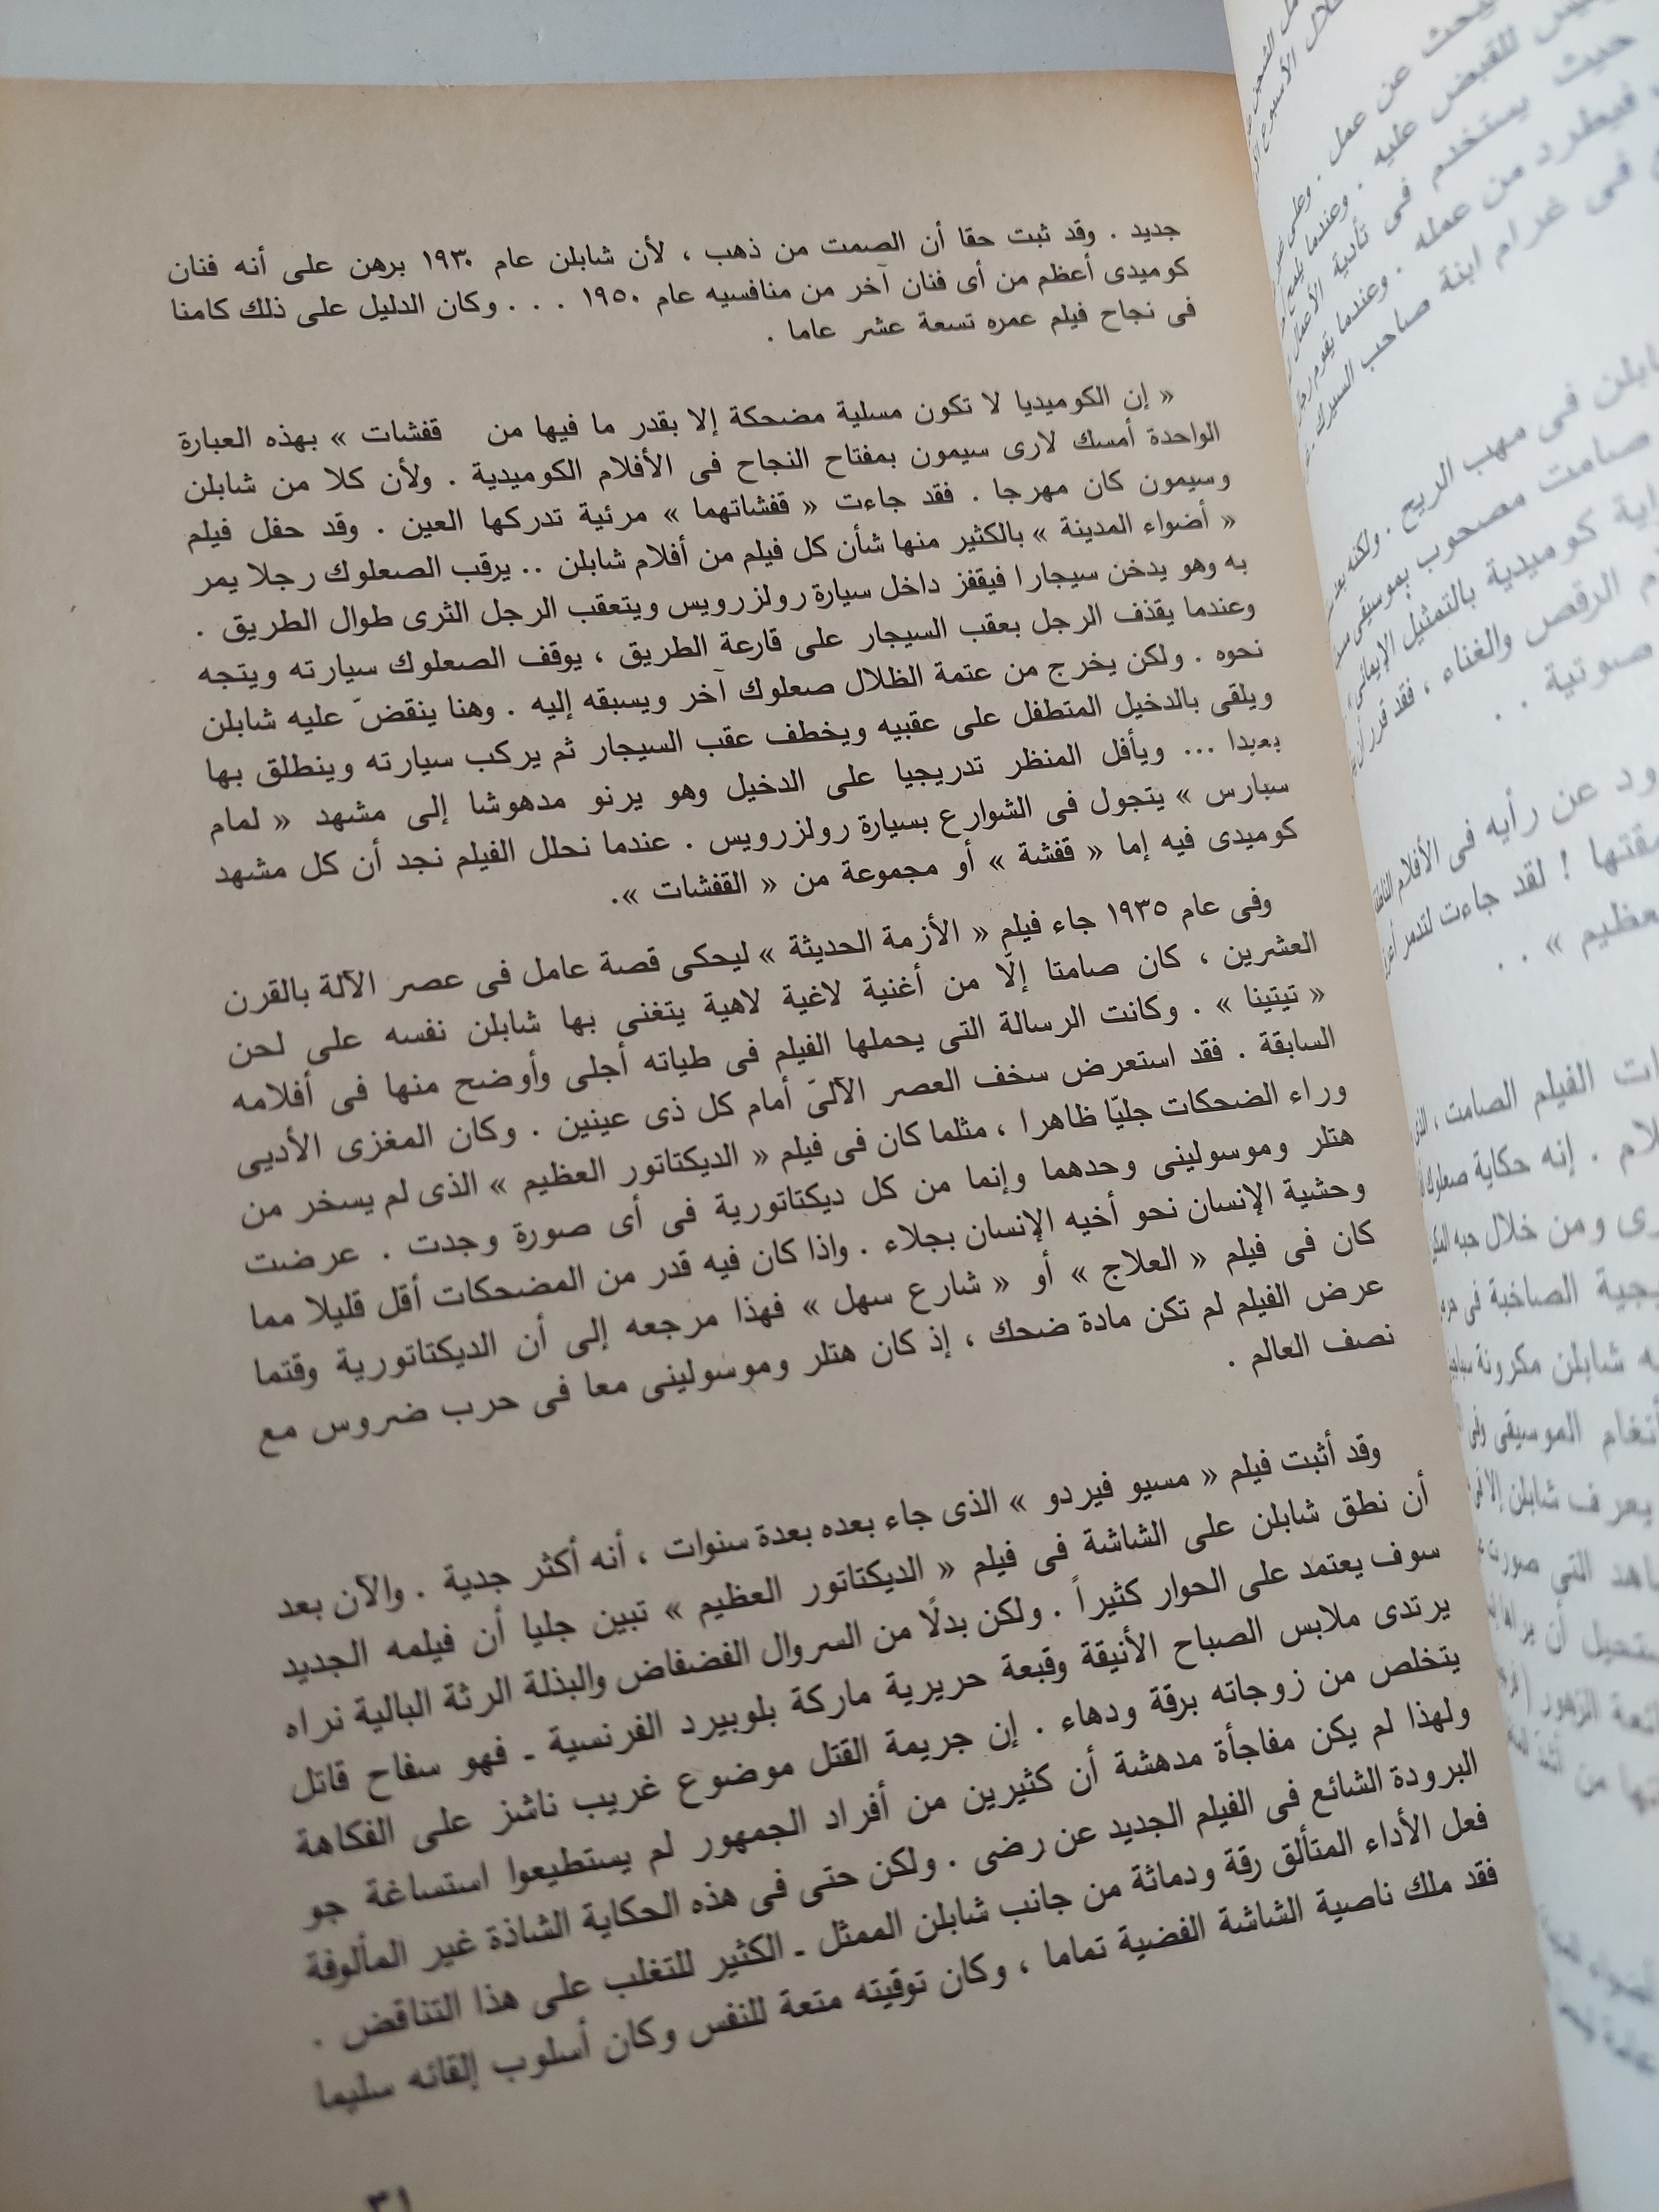 جديد . وقد ثبت حقا أن الصمت من ذهب ، لأن شابلن عام ١٩٣٠ برهن على أنه فنان
كوميدى أعظم من أى فنان آخر من منافسيه عام ١٩٥٠ . . . وكان الدليل على ذلك كامنا
فى نجاح فيلم عمره تسعة عشر عاما .
« إن الكوميديا لا تكون مسلية مضحكة إلا بقدر ما فيها من قفشات » بهذه العبارة
الواحدة أمسك لارى سيمون بمفتاح النجاح فى الأفلام الكوميدية . ولأن كلا من شابلن
وسيمون كان مهرجا . فقد جاءت « قفشاتهما » مرئية تدركها العين . وقد حفل فيلم
« أضواء المدينة » بالكثير منها شأن كل فيلم من أفلام شابلن .. يرقب الصعلوك رجلا يمر
به وهو يدخن سيجارا فيقفز داخل سيارة رولزرويس ويتعقب الرجل الثرى طوال الطريق .
وعندما يقذف الرجل بعقب السيجار على قارعة الطريق ، يوقف الصعلوك سيارته ويتجه
نحوه . ولكن يخرج من عتمة الظلال صعلوك آخر ويسبقه إليه . وهنا ينقضّ عليه شابلن
ويلقى بالدخيل المتطفل على عقبيه ويخطف عقب السيجار ثم يركب سيارته وينطلق بها
بعيدا ... ويأفل المنظر تدريجيا على الدخيل وهو يرنو مدهوشا إلى مشهد « لمام
سبارس » يتجول فى الشوارع بسيارة رولزرويس . عندما نحلل الفيلم نجد أن كل مشهد
كوميدى فيه إما « قفشة » أو مجموعة من « القفشات ».
وفى عام ١٩٣٥ جاء فيلم « الأزمة الحديثة » ليحكى قصة عامل فى عصر الآلة بالقرن
العشرين ، كان صامتا إلّا من أغنية لاغية لاهية يتغنى بها شابلن نفسه على لحن
« تيتينا » . وكانت الرسالة التى يحملها الفيلم فى طياته أجلى وأوضح منها فى أفلامه
السابقة . فقد استعرض سخف العصر الآلىّ أمام كل ذى عينين . وكان المغزى الأدبى
وراء الضحكات جليّا ظاهرا ، مثلما كان فى فيلم « الديكتاتور العظيم » الذى لم يسخر من
هتلر وموسولينى وحدهما وإنما من كل ديكتاتورية فى أى صورة وجدت . عرضت
وحشية الإنسان نحو أخيه الإنسان بجلاء . واذا كان فيه قدر من المضحكات أقل قليلا مما
كان فى فيلم « العلاج » أو « شارع سهل » فهذا مرجعه إلى أن الديكتاتورية وقتما
عرض الفيلم لم تكن مادة ضحك ، إذ كان هتلر وموسولينى معا فى حرب ضروس مع
نصف العالم .
وقد أثبت فيلم « مسيو فيردو » الذى جاء بعده بعدة سنوات ، أنه أكثر جدية . والآن بعد
أن نطق شابلن على الشاشة فى فيلم « الديكتاتور العظيم » تبين جليا أن فيلمه الجديد
سوف يعتمد على الحوار كثيراً . ولكن بدلًا من السروال الفضفاض والبذلة الرثة البالية نراه
يرتدى ملابس الصباح الأنيقة وقبعة حريرية ماركة بلوبيرد الفرنسية ـ فهو سفاح قاتل
يتخلص من زوجاته برقة ودهاء . إن جريمة القتل موضوع غريب ناشز على الفكاهة
ولهذا لم يكن مفاجأة مدهشة أن كثيرين من أفراد الجمهور لم يستطيعوا استساغة جو
البرودة الشائع فى الفيلم الجديد عن رضى . ولكن حتى فى هذه الحكاية الشاذة غير المألوفة
فعل الأداء المتألق رقة ودماثة من جانب شابلن الممثل ـ الكثير للتغلب على هذا التناقض .
فقد ملك ناصية الشاشة الفضية تماما ، وكان توقيته متعة للنفس وكان أسلوب إلقائه سليما
٣١
يبحث عن عمل . وعلى
للقبض عليه . وعندما
حيث يستخدم فى تأدية الأعمال
فيطرد من عمله . وعندما يقوم
فى غرام ابنة صاحب السيرك
فى مهب الريح . ولكنه بعد
صامت مصحوب بموسيقى
كوميدية بالتمثيل الإيمائى
الرقص والغناء ، فقد قرر أن
صوتية . .
عن رأيه فى الأفلام الناطقة
! لقد جاءت لتدمر
» . .
الفيلم الصامت ،
. إنه حكاية صعلوك
ومن خلال حبه
الصاخبة فى
شابلن مكرونة
الموسيقى وفى
يعرف شابلن إلا
التي صورت
أن يراها
الزهور
من